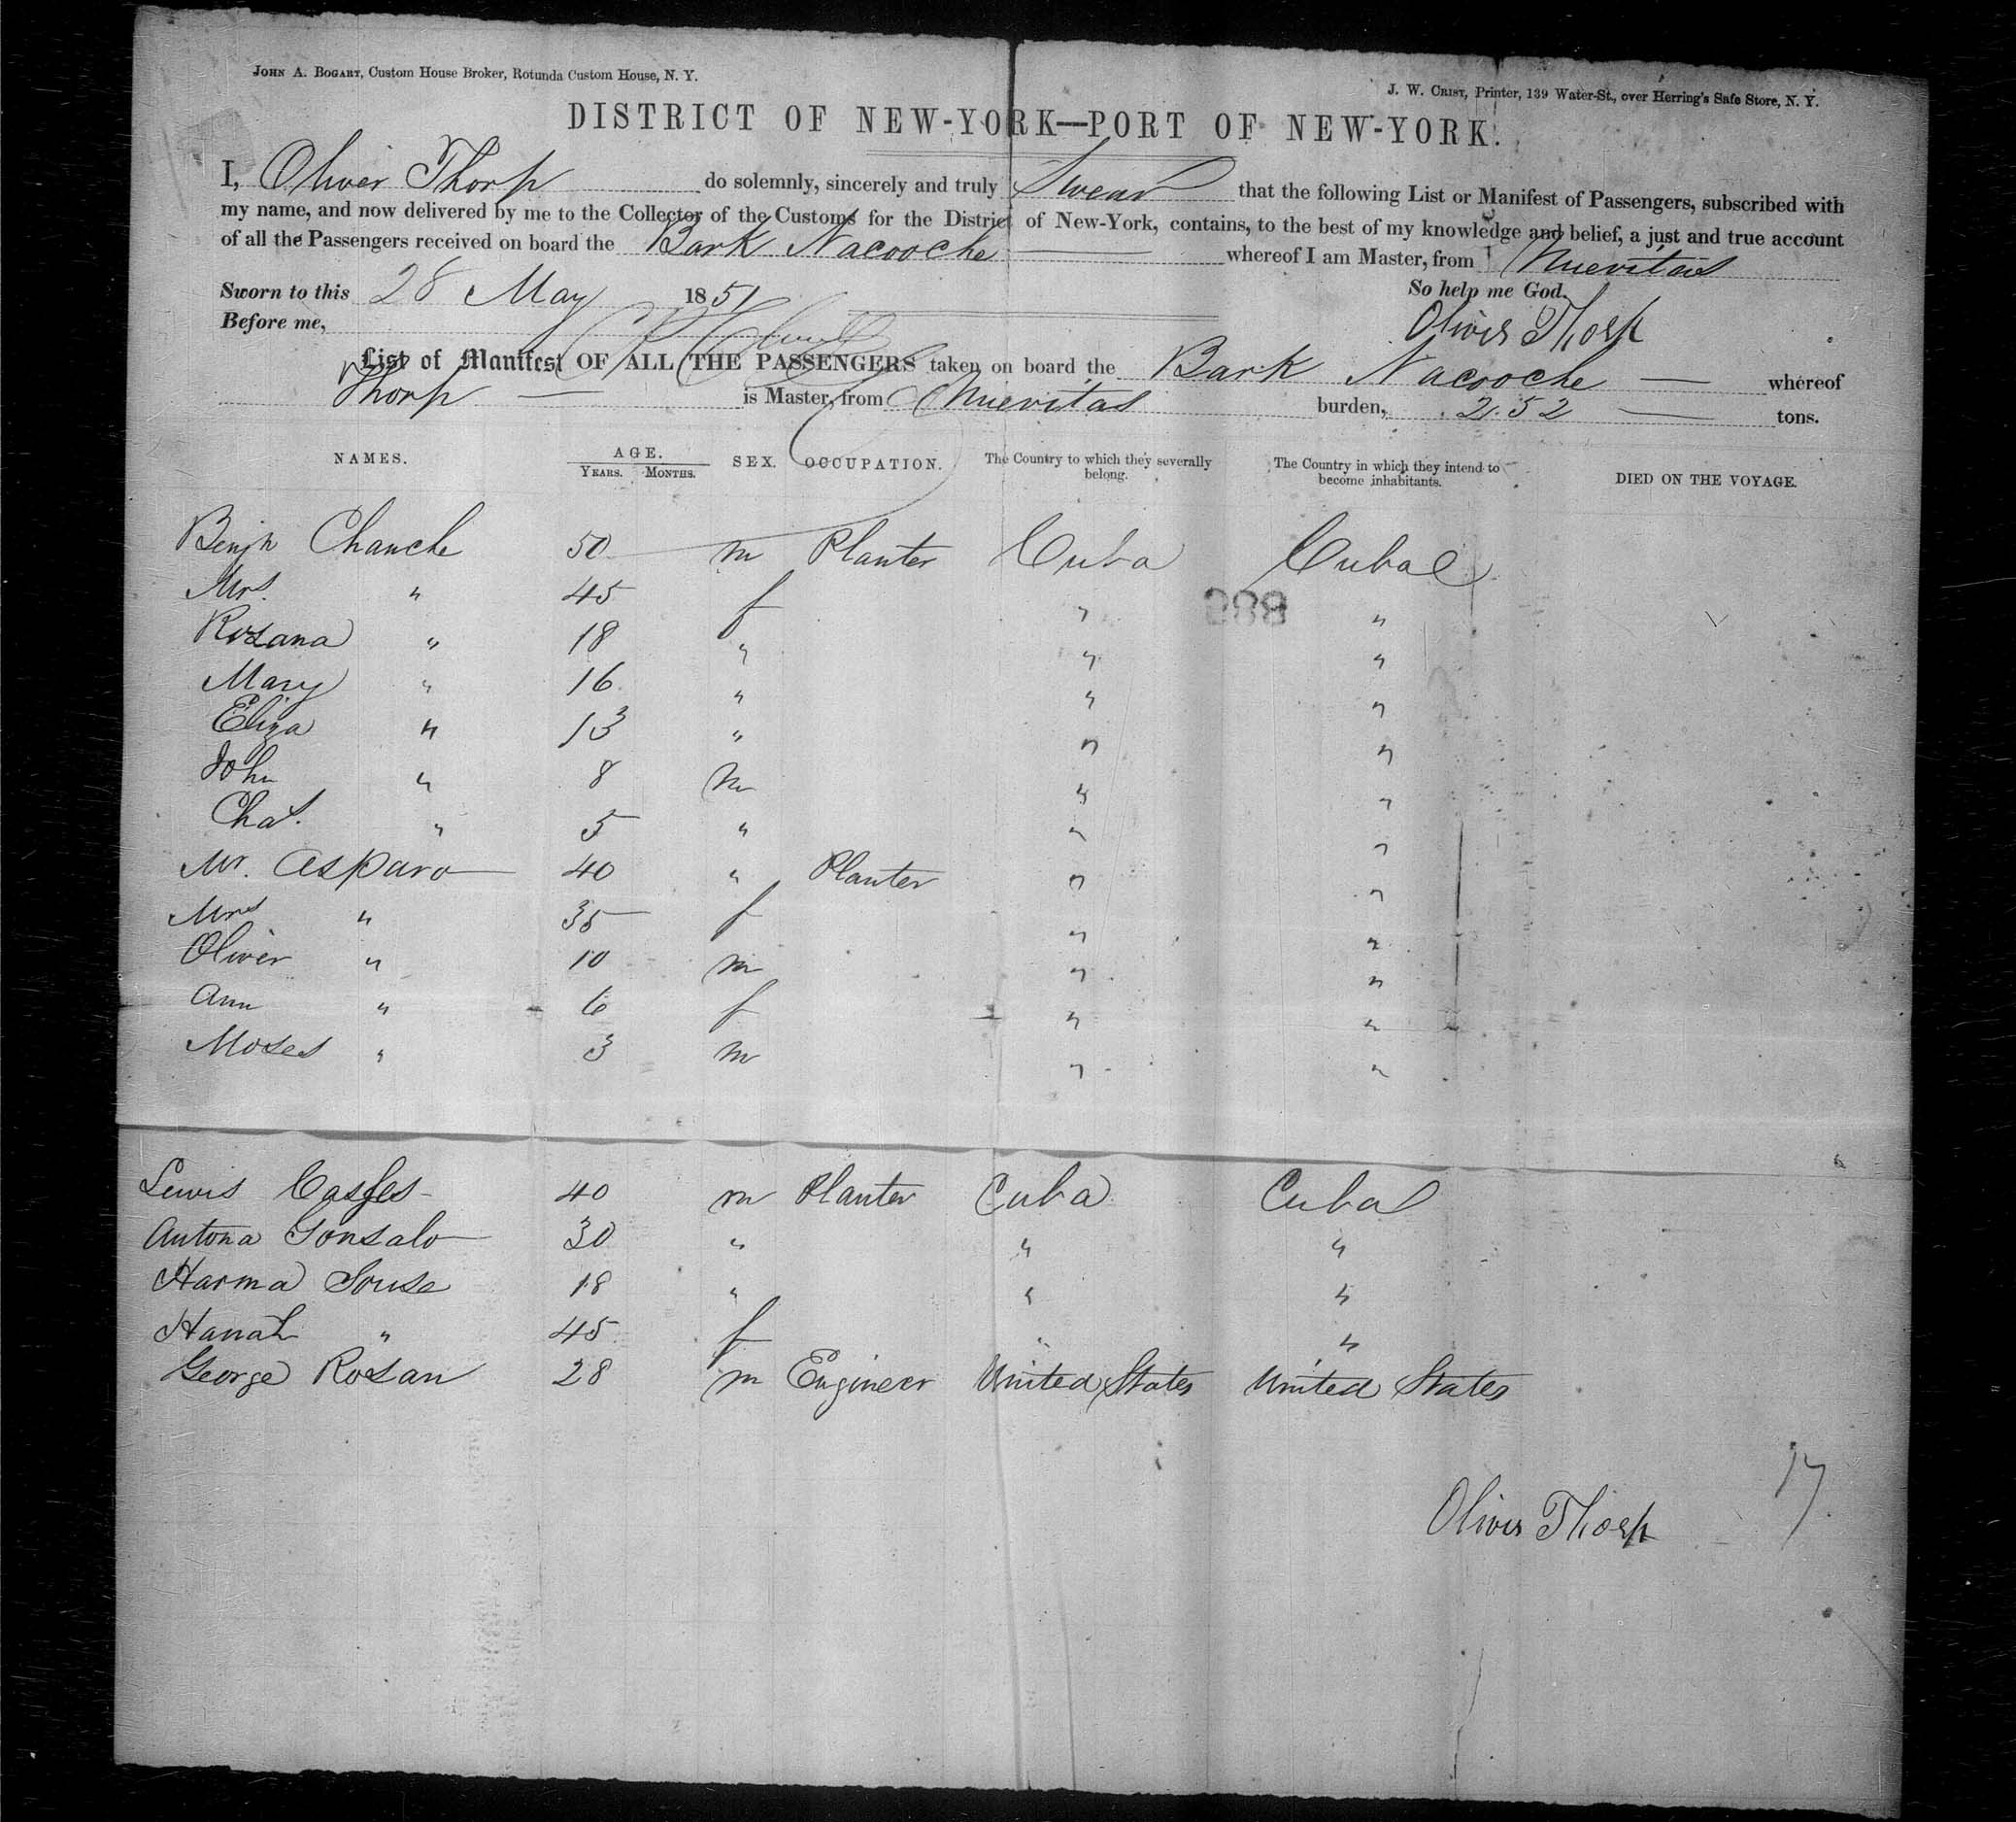 JOHN A. BOGART, Custom House Broker, Rotunda Custom House, N. Y.
J. W. CRIST, Printer, 139 Water-St., over Herring's Safe Store, N. Y.
DISTRICT OF NEW-YORK—PORT OF NEW-YORK.
I, Oliver Thorp do solemnly, sincerely and truly Swear that the following List or Manifest of Passengers, subscribed with
my name, and now delivered by me to the Collector of the Customs for the District of New-York, contains, to the best of my knowledge and belief, a just and true account
of all the Passengers received on board the Bark Nacooche whereof I am Master, from Nuevitas
Sworn to this 28 May 1851 So help me God.
Before me, Oliver Thorp
List of Manifest OF ALL THE PASSENGERS taken on board the Bark Nacooche — whereof
Thorp — is Master, from Nuevitas burden, 252 — tons.
NAMES. AGE. YEARS. MONTHS. SEX. OCCUPATION. The Country to which they severally belong. The Country in which they intend to become inhabitants. DIED ON THE VOYAGE.
Benjn Chanche 50 m Planter Cuba Cuba
Mrs. " 45 f " "
988
Rosana " 18 " " "
Mary " 16 " " "
Eliza " 13 " " "
John " 8 m " "
Chas. " 5 " " "
Mr. Asparo 40 " Planter " "
Mrs " 35 f " "
Oliver " 10 m " "
Ann " 6 f " "
Moses " 3 m " "
Lewis 40 m Planter Cuba Cuba
Antona Gonsalo 30 " " "
Harma Souse 18 " " "
Hanah " 45 f " "
George Rosan 28 m Engineer United States United States
17
Oliver Thorp